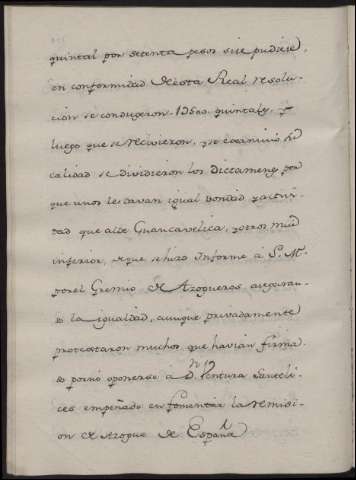 quintal por setenta pesos si se pudiese,
en conformidad de esta Real resolu-
cion se condugeron 1500 quintales, y
luego que se recivieron, y se examinó su
calidad se dividieron los dictamens por
que unos le davan igual bondad y activi-
dad que al de Guancavelica, y otros mui
inferior, de que se hizo Informe á S. M.
por el Gremio de Azogueros aseguran-
do la igualdad, aunque privadamente
protestaron muchos que havian firma-
do por no oponerse á Dn. Ventura Santeli-
ces empeñado en fomentar la remisi-
on de Azogue de España